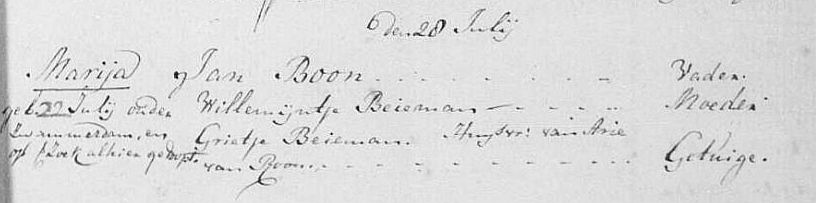 den 28 Julij
Marija Jan Boon Vader.
geb. 22 Julij onder Willemijntje Beieman Moeder
Zwammerdam, en Grietje Beieman. Huysvr: van Arie
op verzoek alhier gedoopt. van Roon Getuige.